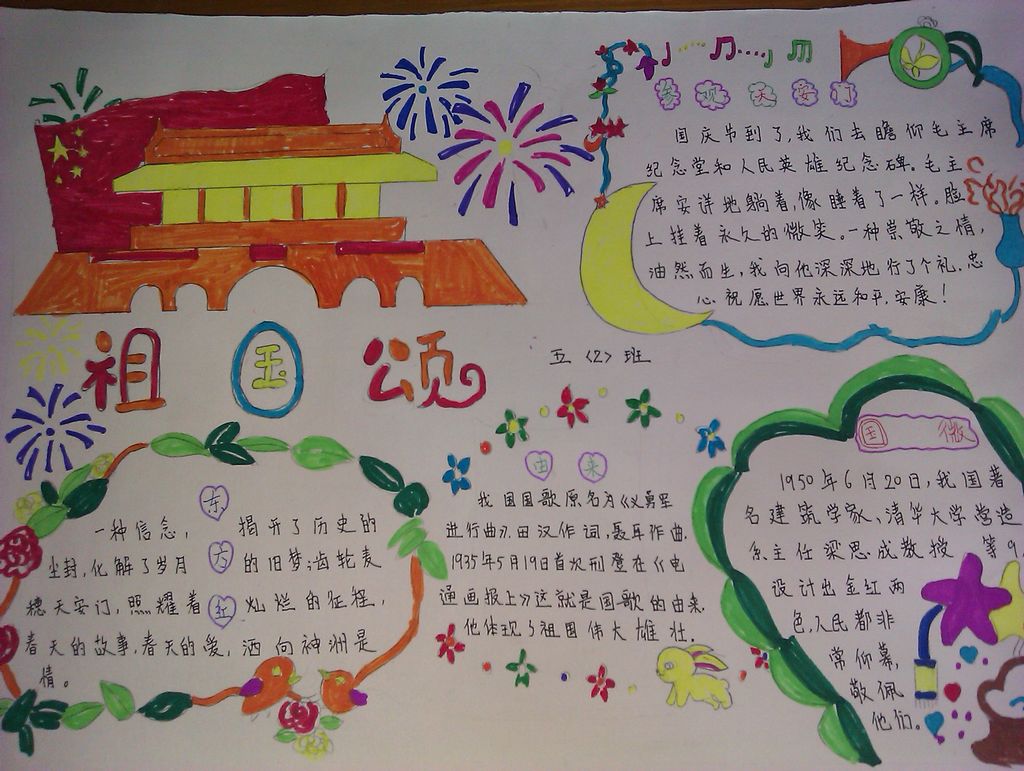 参观天安门
国庆节到了,我们去瞻仰毛主席
纪念堂和人民英雄纪念碑。毛主
席安详地躺着,像睡着了一样。脸
上挂着永久的微笑。一种崇敬之情,
油然而生,我向他深深地行了个礼.忠
心祝愿世界永远和平,安康!
祖国颂
五〈2〉班
东方红
一种信念,揭开了历史的
尘封,化解了岁月的旧梦;齿轮麦
穗天安门,照耀着灿烂的征程,
春天的故事,春天的爱,洒向神洲是
情。
由来
我国国歌原名为《义勇军
进行曲》.田汉作词,聂耳作曲.
1935年5月19日首次刑登在《电
通画报上》这就是国歌的由来.
他体现了祖国伟大雄壮.
国 微
1950年6月20日,我国著
名建筑学家、清华大学营造
系主任梁思成教授 等9
设计出金红两
色,人民都非
常仰慕,
敬佩
他们。